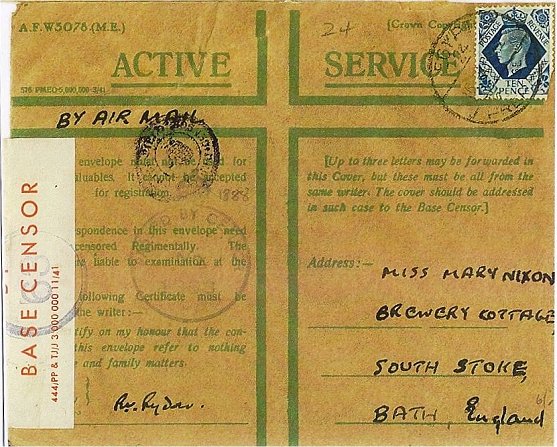 A.F.W3078 (M.E.)
24
[Crown Copyright
ACTIVE SERVICE
576 PMEO-5,000,000-3/41
POSTAGE REVENUE
TEN PENCE
BY AIR MAIL
envelope must not be used for
valuables. It cannot be accepted
for registration.
1888
respondence in this envelope need
censored Regimentally. The
are liable to examination at the
following Certificate must be
the writer:—
tify on my honour that the con-
this envelope refer to nothing
and family matters.
BASE CENSOR
444/PP & T/J/J 3 000 000 11/41
[Up to three letters may be forwarded in
this Cover, but these must be all from the
same writer. The cover should be addressed
in such case to the Base Censor.]
Address:—
MISS MARY NIXON
BREWERY COTTAGE
SOUTH STOKE,
BATH, England
6/-